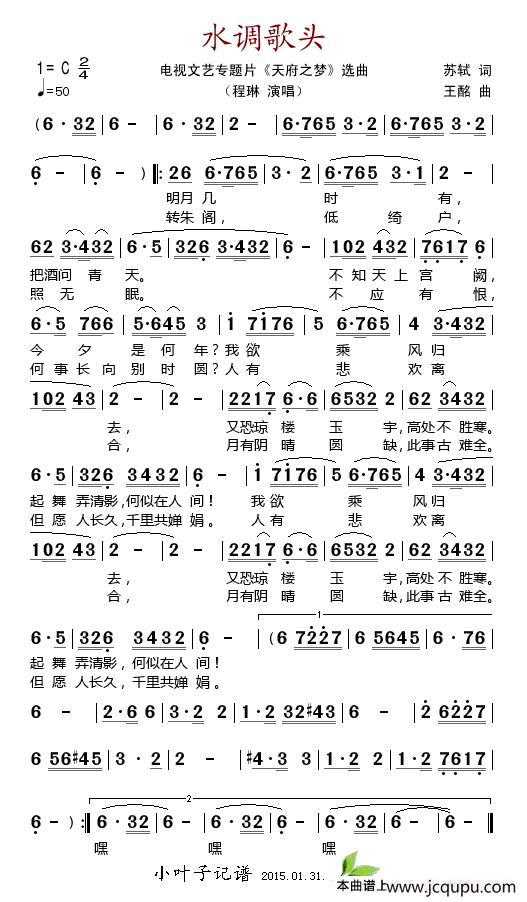 水调歌头
1= C 2/4 电视文艺专题片《天府之梦》选曲 苏轼 词
♩=50 （程琳 演唱） 王酩 曲
( 6 · 32 | 6 - | 6 · 32 | 2 - | 6·765 3·2 | 6·765 3·2 |
6 - | 6 - ) ‖: 26 6·765 | 3 · 2 | 6·765 3·1 | 2 - |
明月 几 时 有，
转朱 阁， 低 绮 户，
62 3·432 | 6 · 5 | 326 3·432 | 6 - | 102 432 | 7617 6 |
把酒问 青 天。 不 知 天 上 宫 阙，
照 无 眠。 不 应 有 恨，
6 · 5 766 | 5·645 3 | i 7i76 | 5 6·765 | 4 3·432 |
今 夕 是 何 年？我 欲 乘 风 归
何 事 长 向 别 时 圆？人 有 悲 欢 离
102 43 | 2 - | 2 - | 2217 6·6 | 6532 2 | 62 3432 |
去， 又恐琼 楼 玉 宇，高处 不 胜寒。
合， 月有阴 晴 圆 缺，此事 古 难全。
6 · 5 | 326 3432 | 6 - | i 7i76 | 5 6·765 | 4 3·432 |
起 舞 弄清影，何似在人 间！ 我 欲 乘 风 归
但 愿 人长久，千里共婵 娟。 人 有 悲 欢 离
102 43 | 2 - | 2 - | 2217 6·6 | 6532 2 | 62 3432 |
去， 又恐琼 楼 玉 宇，高处 不 胜寒。
合， 月有阴 晴 圆 缺，此事 古 难全。
1
6 · 5 | 326 3432 | 6 - | ( 6 7227 | 6 5645 | 6 · 76 |
起 舞 弄清影，何似在人 间！
但 愿 人长久，千里共婵 娟。
6 - | 2·6 6 | 3·2 2 | 1·2 1 | 32#43 2 | 2 6227 |
6 56#45 | 3 · 2 | 2 - | #4·3 3 | 1·2 1 | 2·2 7617 |
2
6 - ) :‖ 6·32 | 6·32 | 6·32 | 6 - | 6 - ‖
嘿 嘿 嘿 嘿
小叶子记谱 2015.01.31. 本曲谱上 www.jcqupu.com